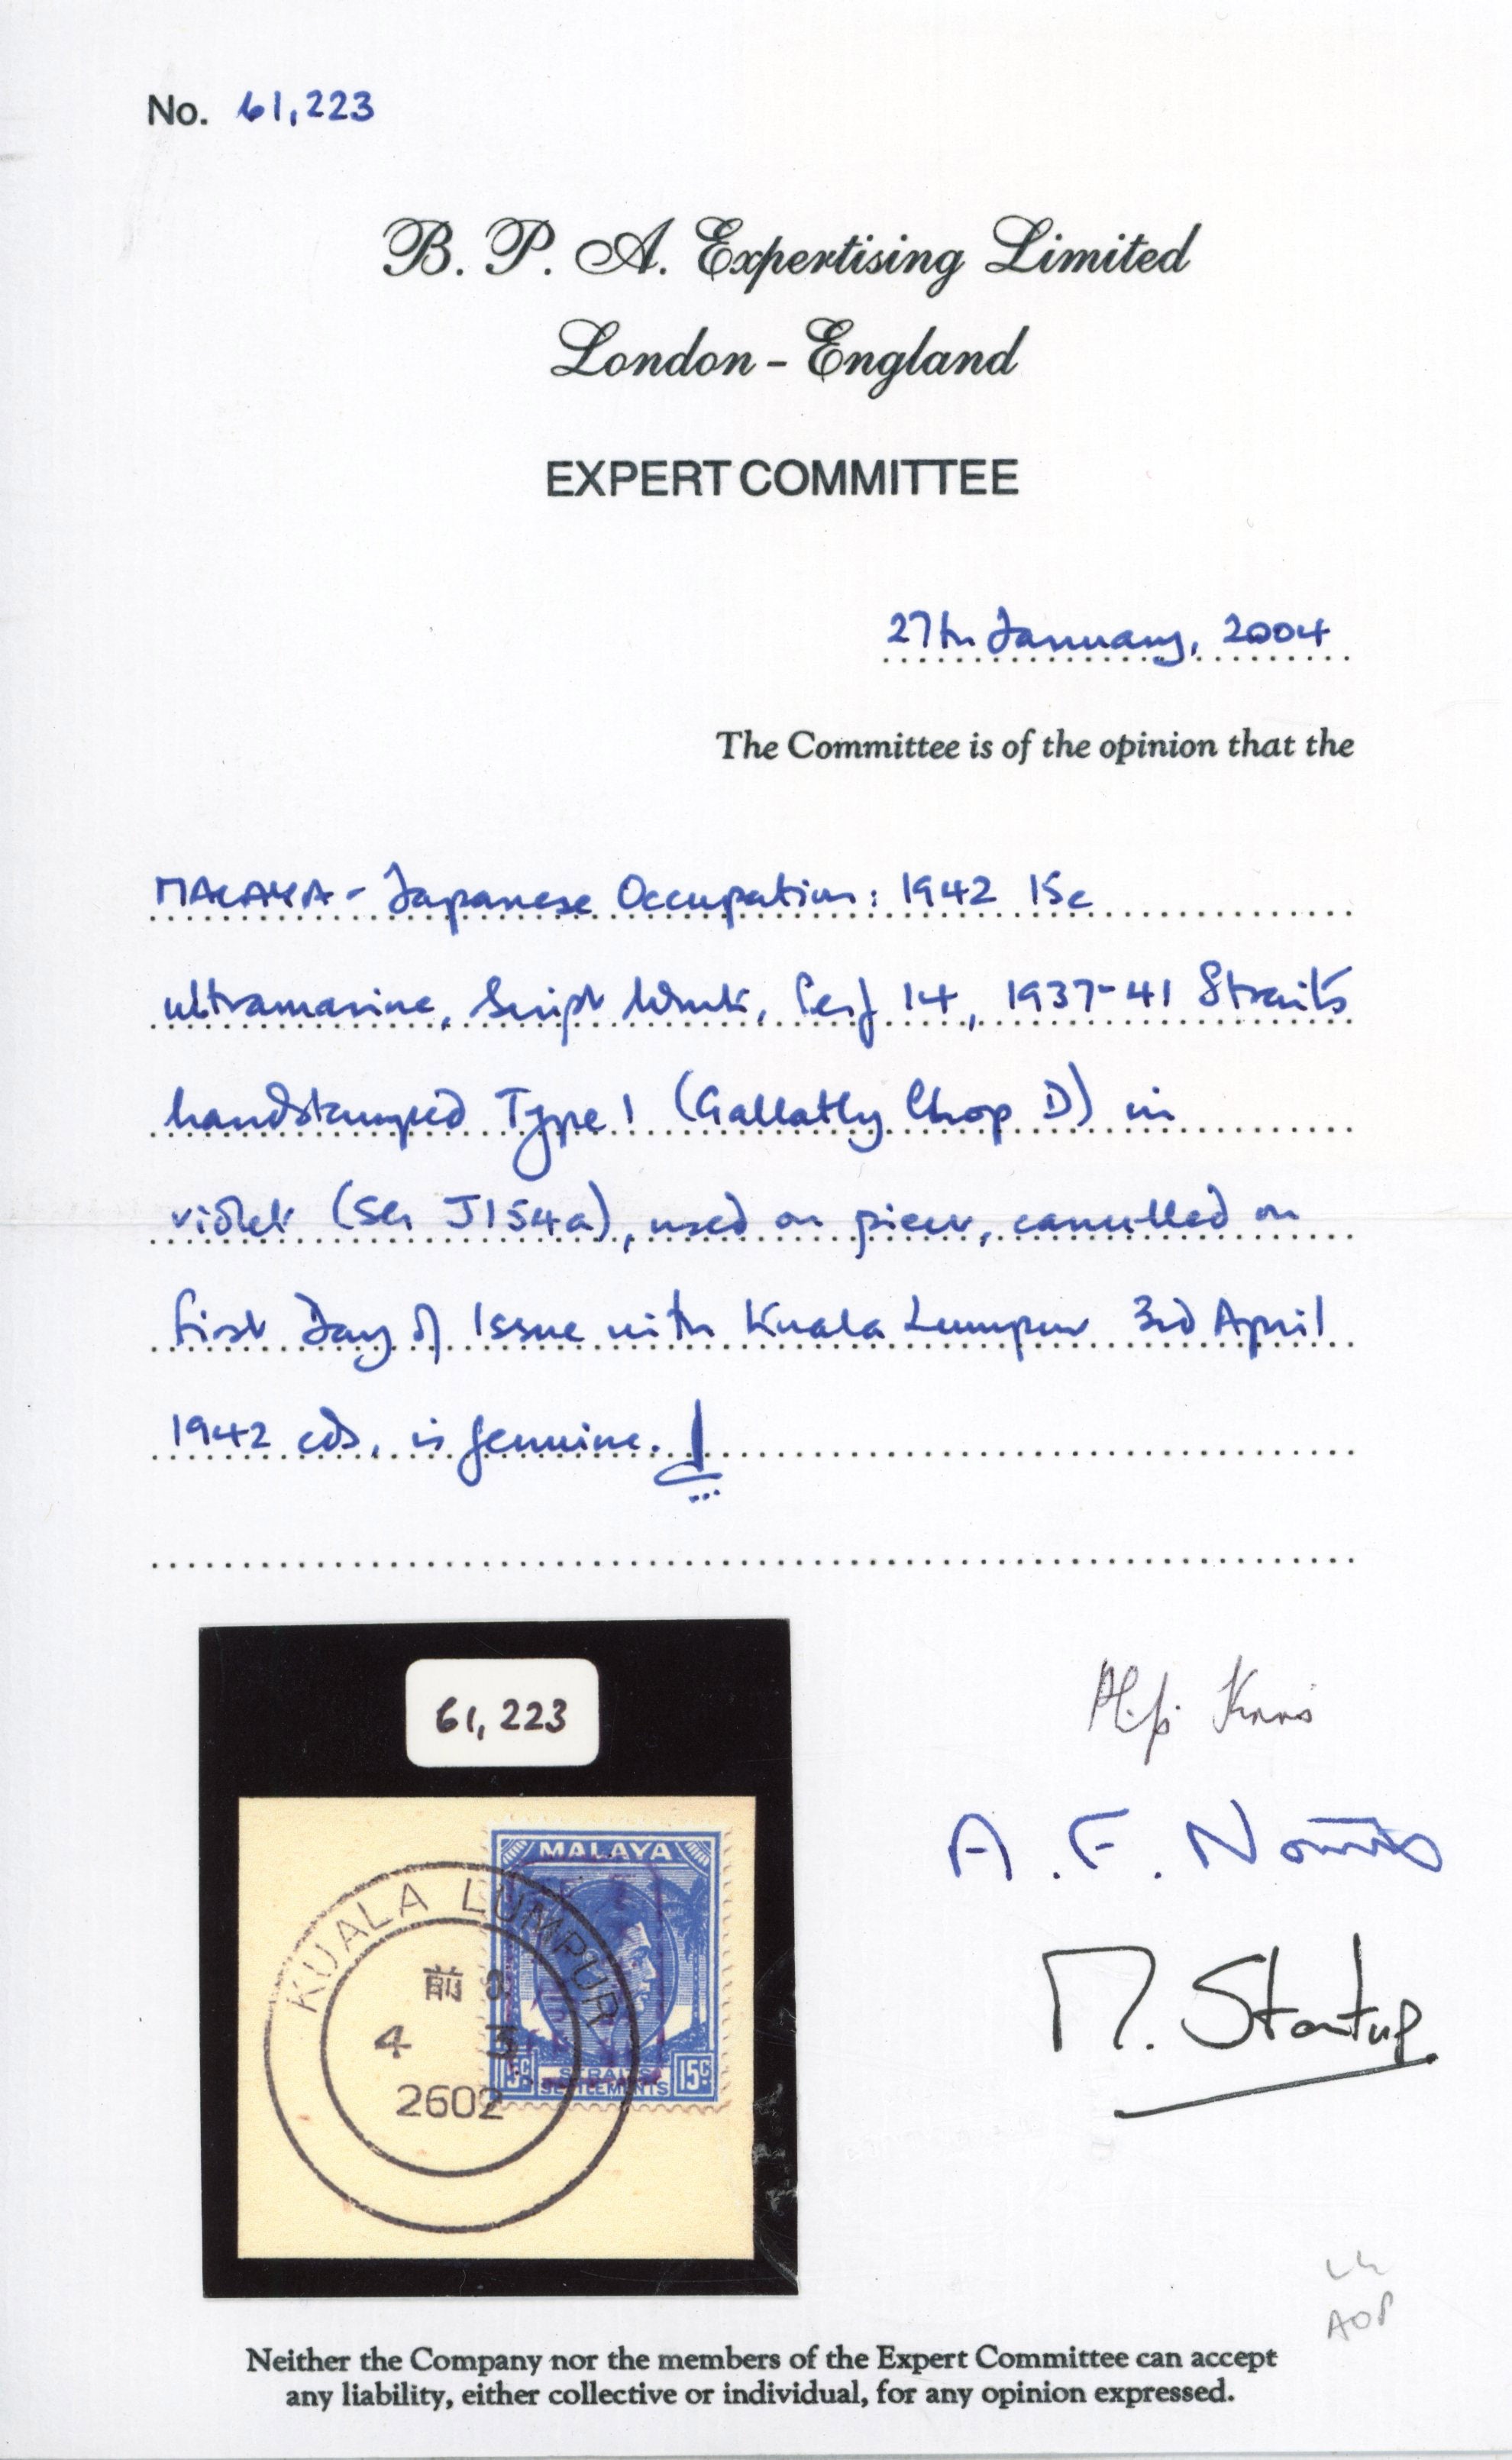 No. 61,223
B. P. A. Expertising Limited
London - England
EXPERT COMMITTEE
27th January, 2004
The Committee is of the opinion that the
MALAYA - Japanese Occupation: 1942 15c
ultramarine, Script Wmk, Perf 14, 1937-41 Straits
handstamped Type 1 (Gallatly Chop D) in
violet (SG J154a), used on piece, cancelled on
First Day of Issue with Kuala Lumpur 3rd April
1942 cds, is genuine.
61,223
MALAYA
KUALA LUMPUR
前
4 3
2602
15c 15c
STRAITS
SETTLEMENTS
A. F. Norris
M. Startup
AOP
Neither the Company nor the members of the Expert Committee can accept
any liability, either collective or individual, for any opinion expressed.